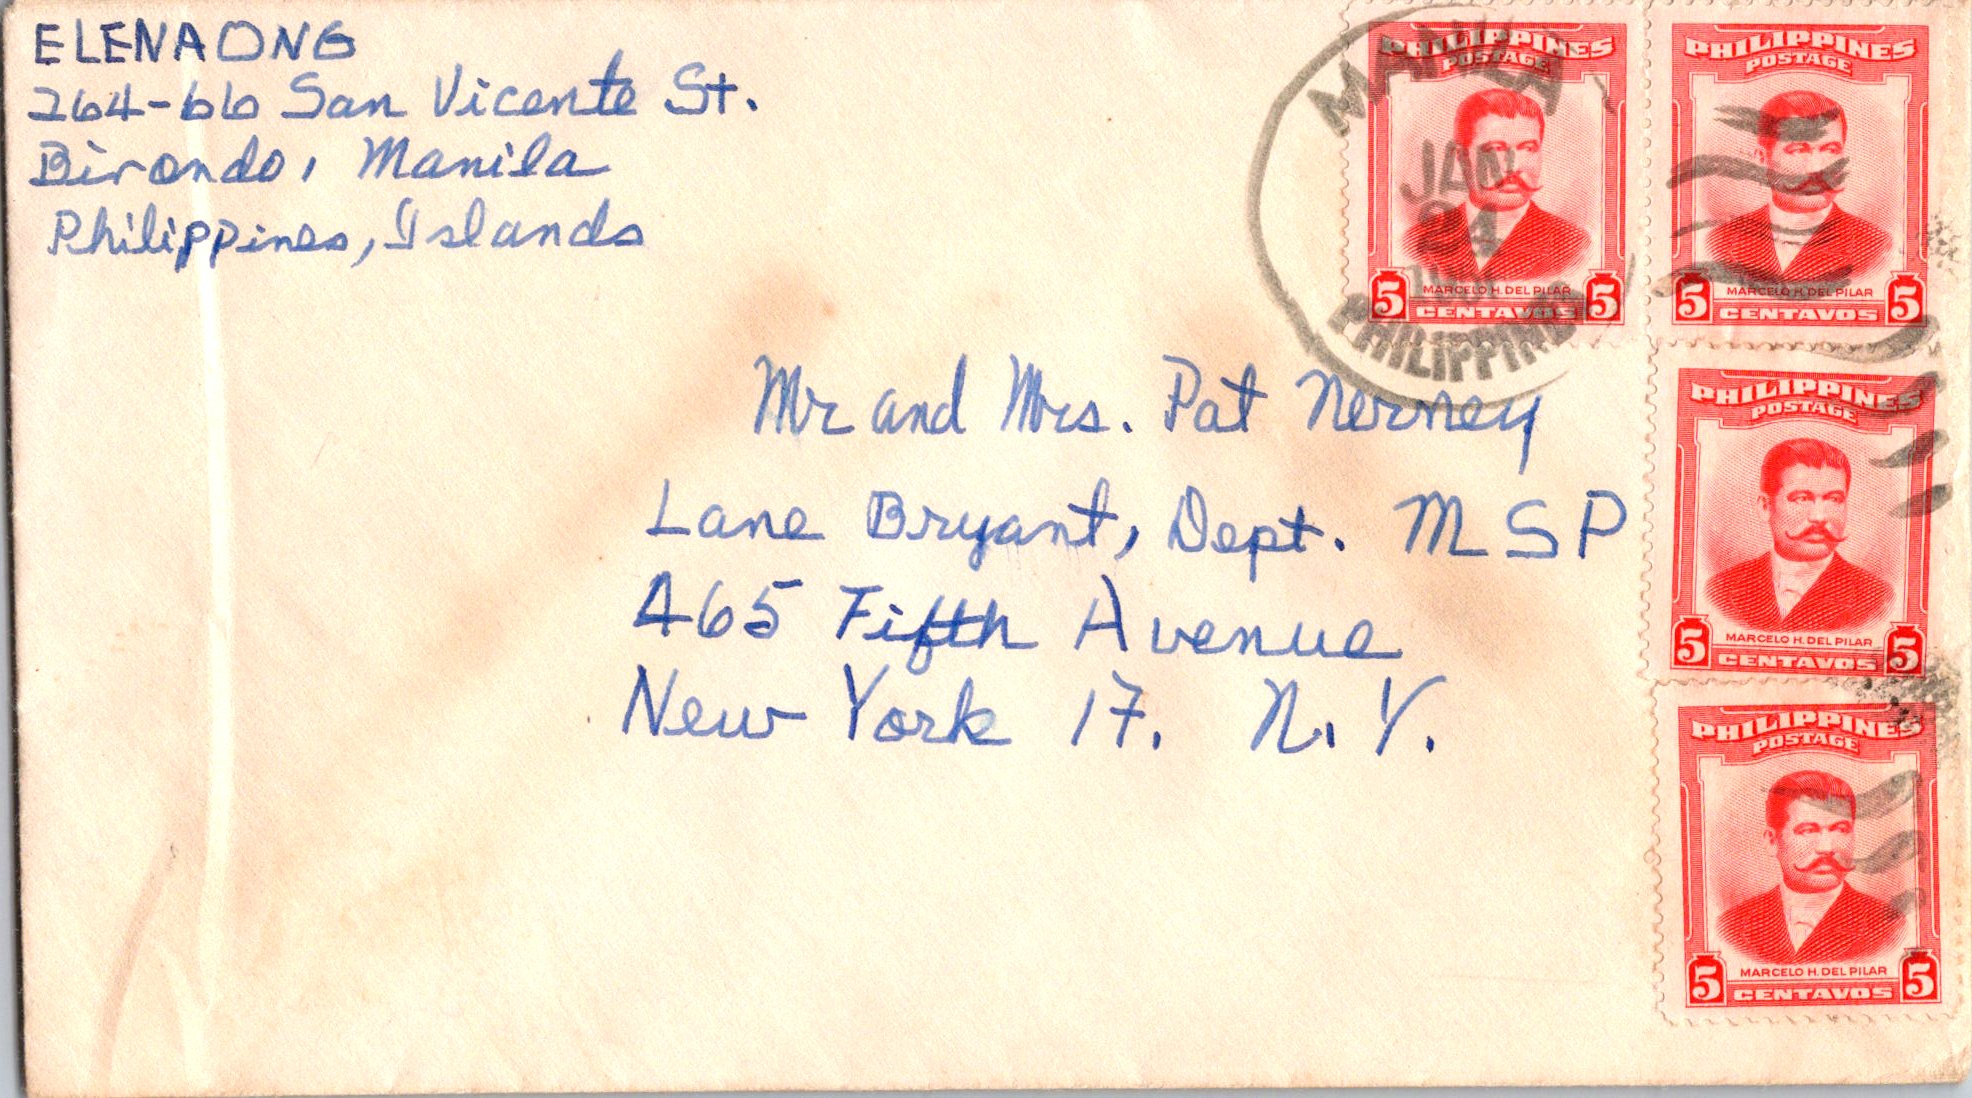 ELENA ONG
264-66 San Vicente St.
Birondo, Manila
Philippines, Islands
MANILA
JAN
24
PHILIPPINES
PHILIPPINES
POSTAGE
MARCELO H. DEL PILAR
5 5
CENTAVOS
PHILIPPINES
POSTAGE
MARCELO H. DEL PILAR
5 5
CENTAVOS
Mr and Mrs. Pat Nerney
Lane Bryant, Dept. MSP
465 Fifth Avenue
New York 17. N.Y.
PHILIPPINES
POSTAGE
MARCELO H. DEL PILAR
5 5
CENTAVOS
PHILIPPINES
POSTAGE
MARCELO H. DEL PILAR
5 5
CENTAVOS